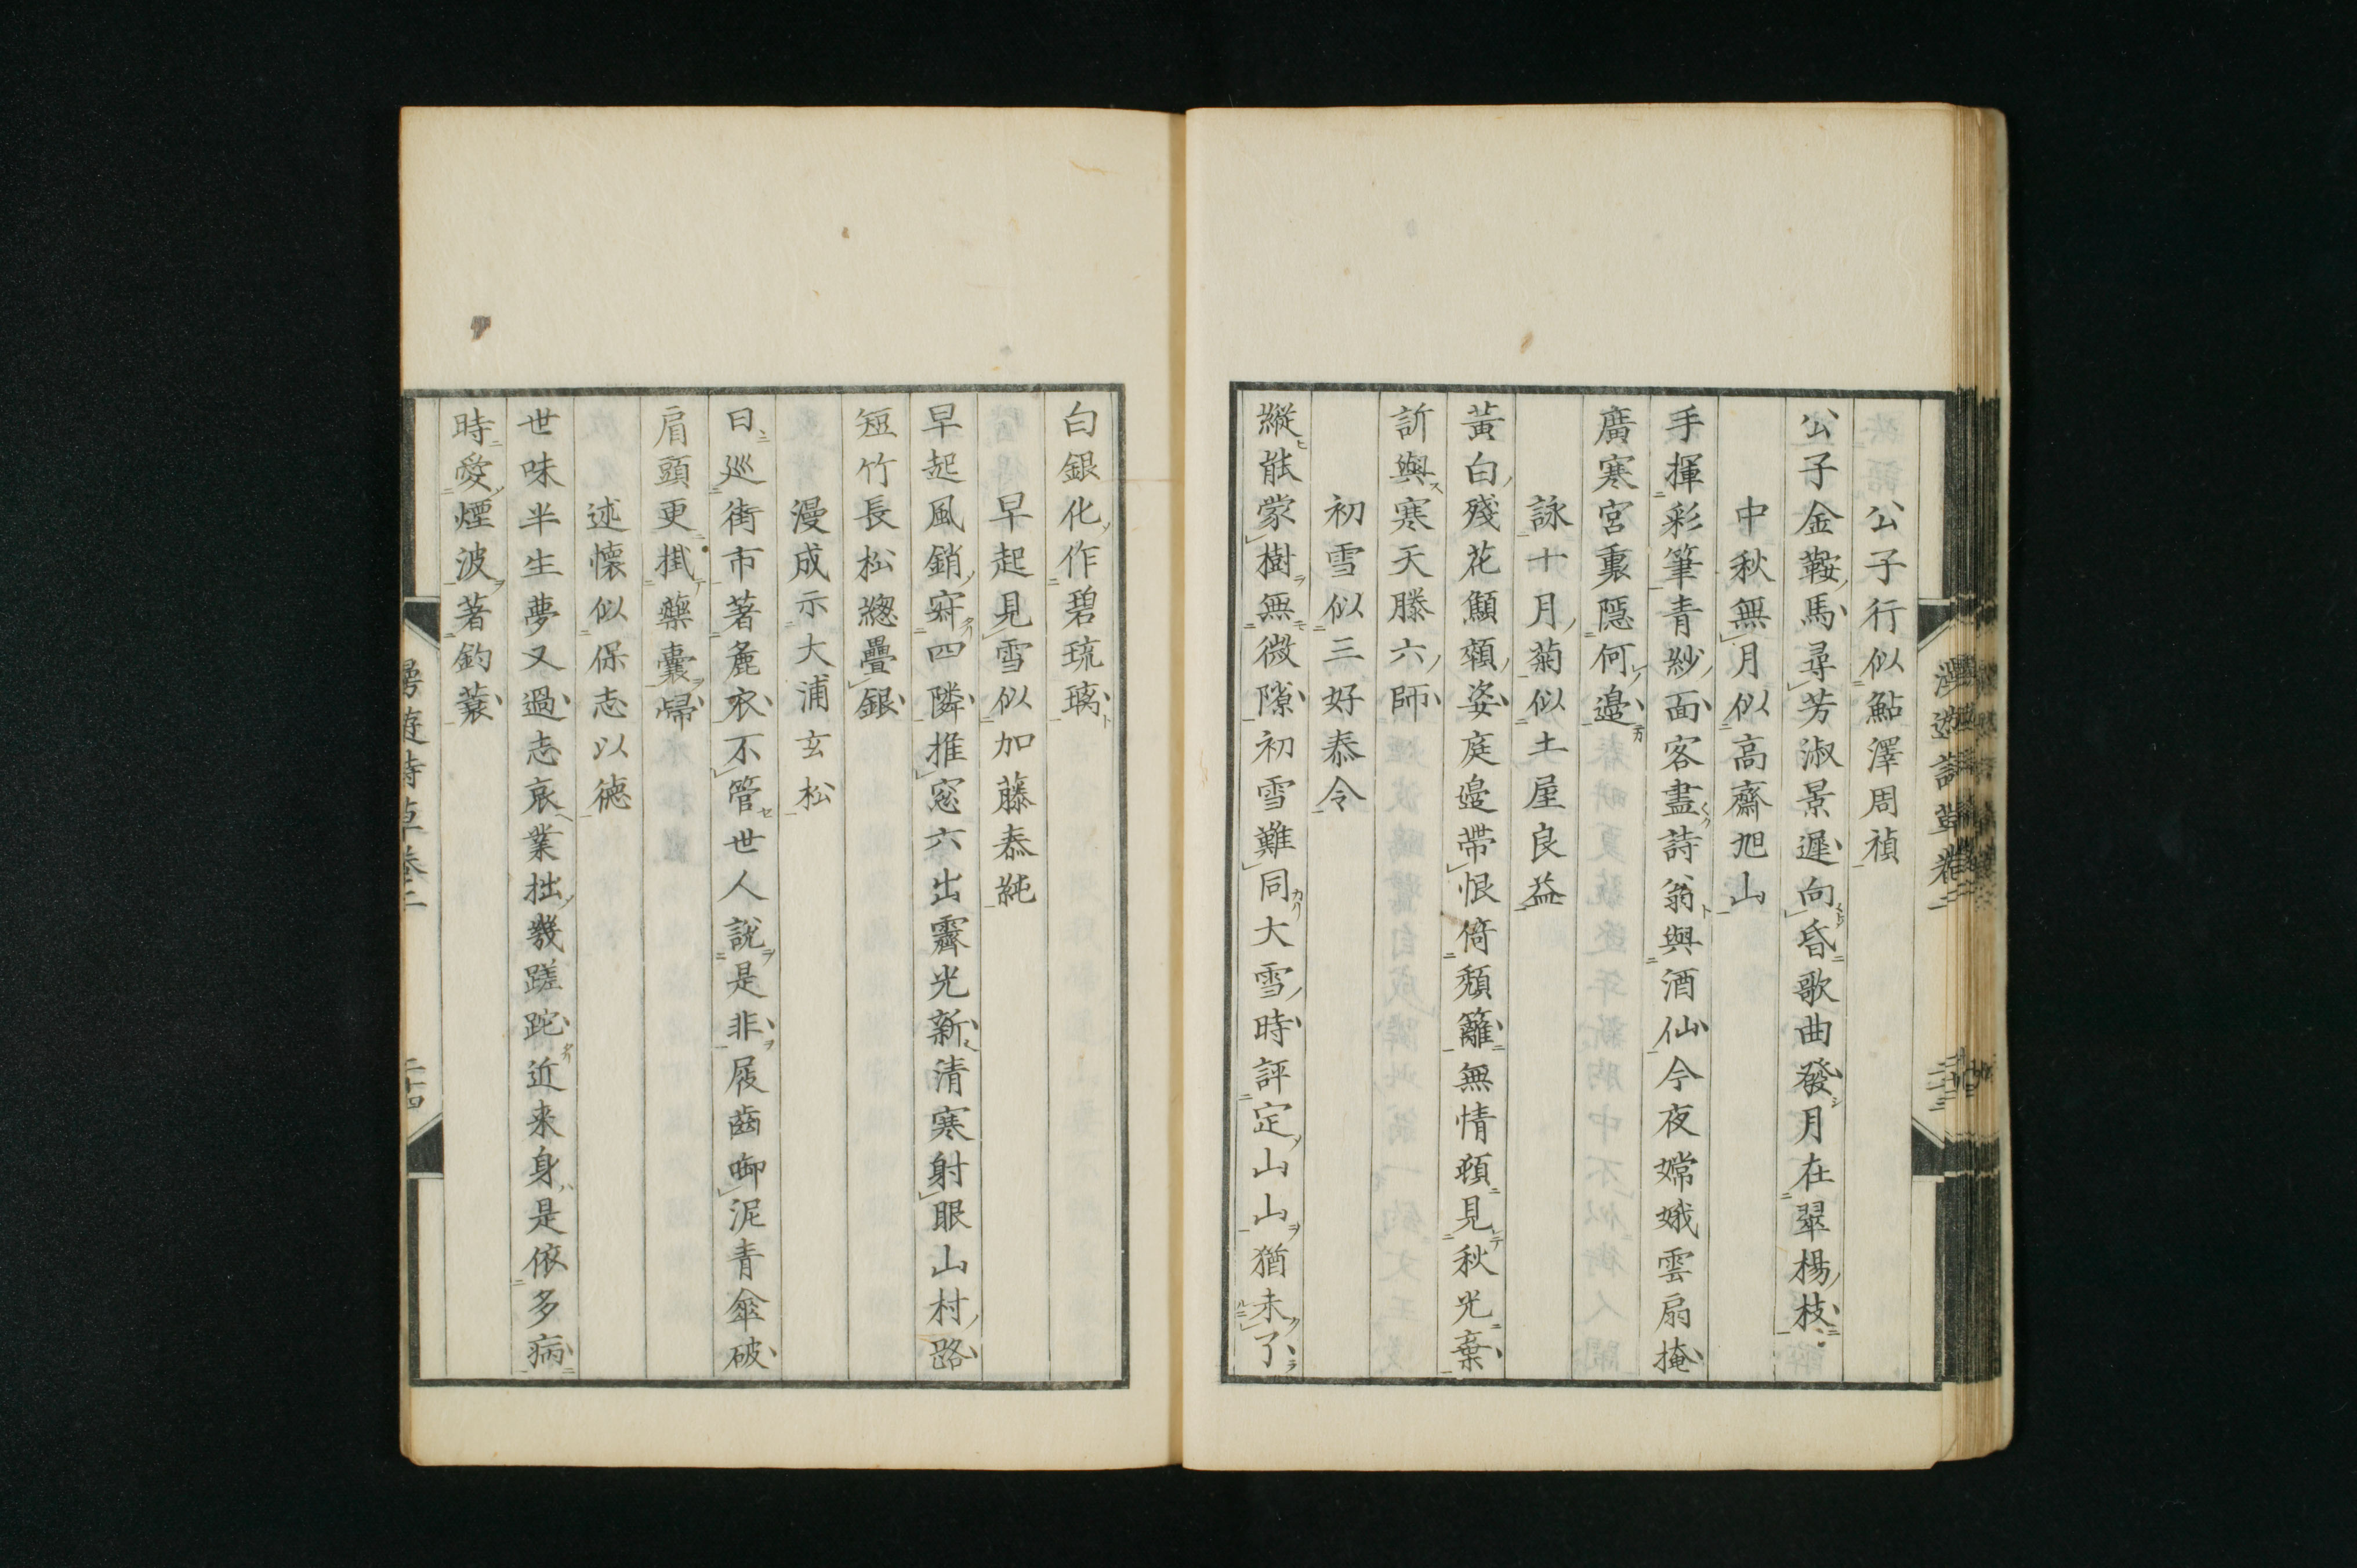 公子行似鮎澤周禎
公子金鞍馬尋芳淑景遲向昏歌曲發月在翠楊枝
中秋無月似高齋旭山
手揮彩筆青紗面客盡詩翁與酒仙今夜嫦娥雲扇掩
廣寒宮裏隱何邊
詠十月菊似土屋良益
黃白殘花顦顇姿庭邊帶恨倚頽籬無情頓見秋光棄
訴與寒天滕六師
初雪似三好泰令
縱能蒙樹無微隙初雪難同大雪時評定山山猶未了
白銀化作碧琉璃
早起見雪似加藤泰純
早起風銷寂四隣推窓六出霽光新清寒射眼山村路
短竹長松總疊銀
漫成示大浦玄松
日巡街市著麁衣不管世人說是非屐齒啣泥青傘破
肩頭更掛藥囊歸
述懷似保志以德
世味半生夢又過志哀業拙幾蹉跎近来身是依多病
時愛煙波著釣蓑
二十四